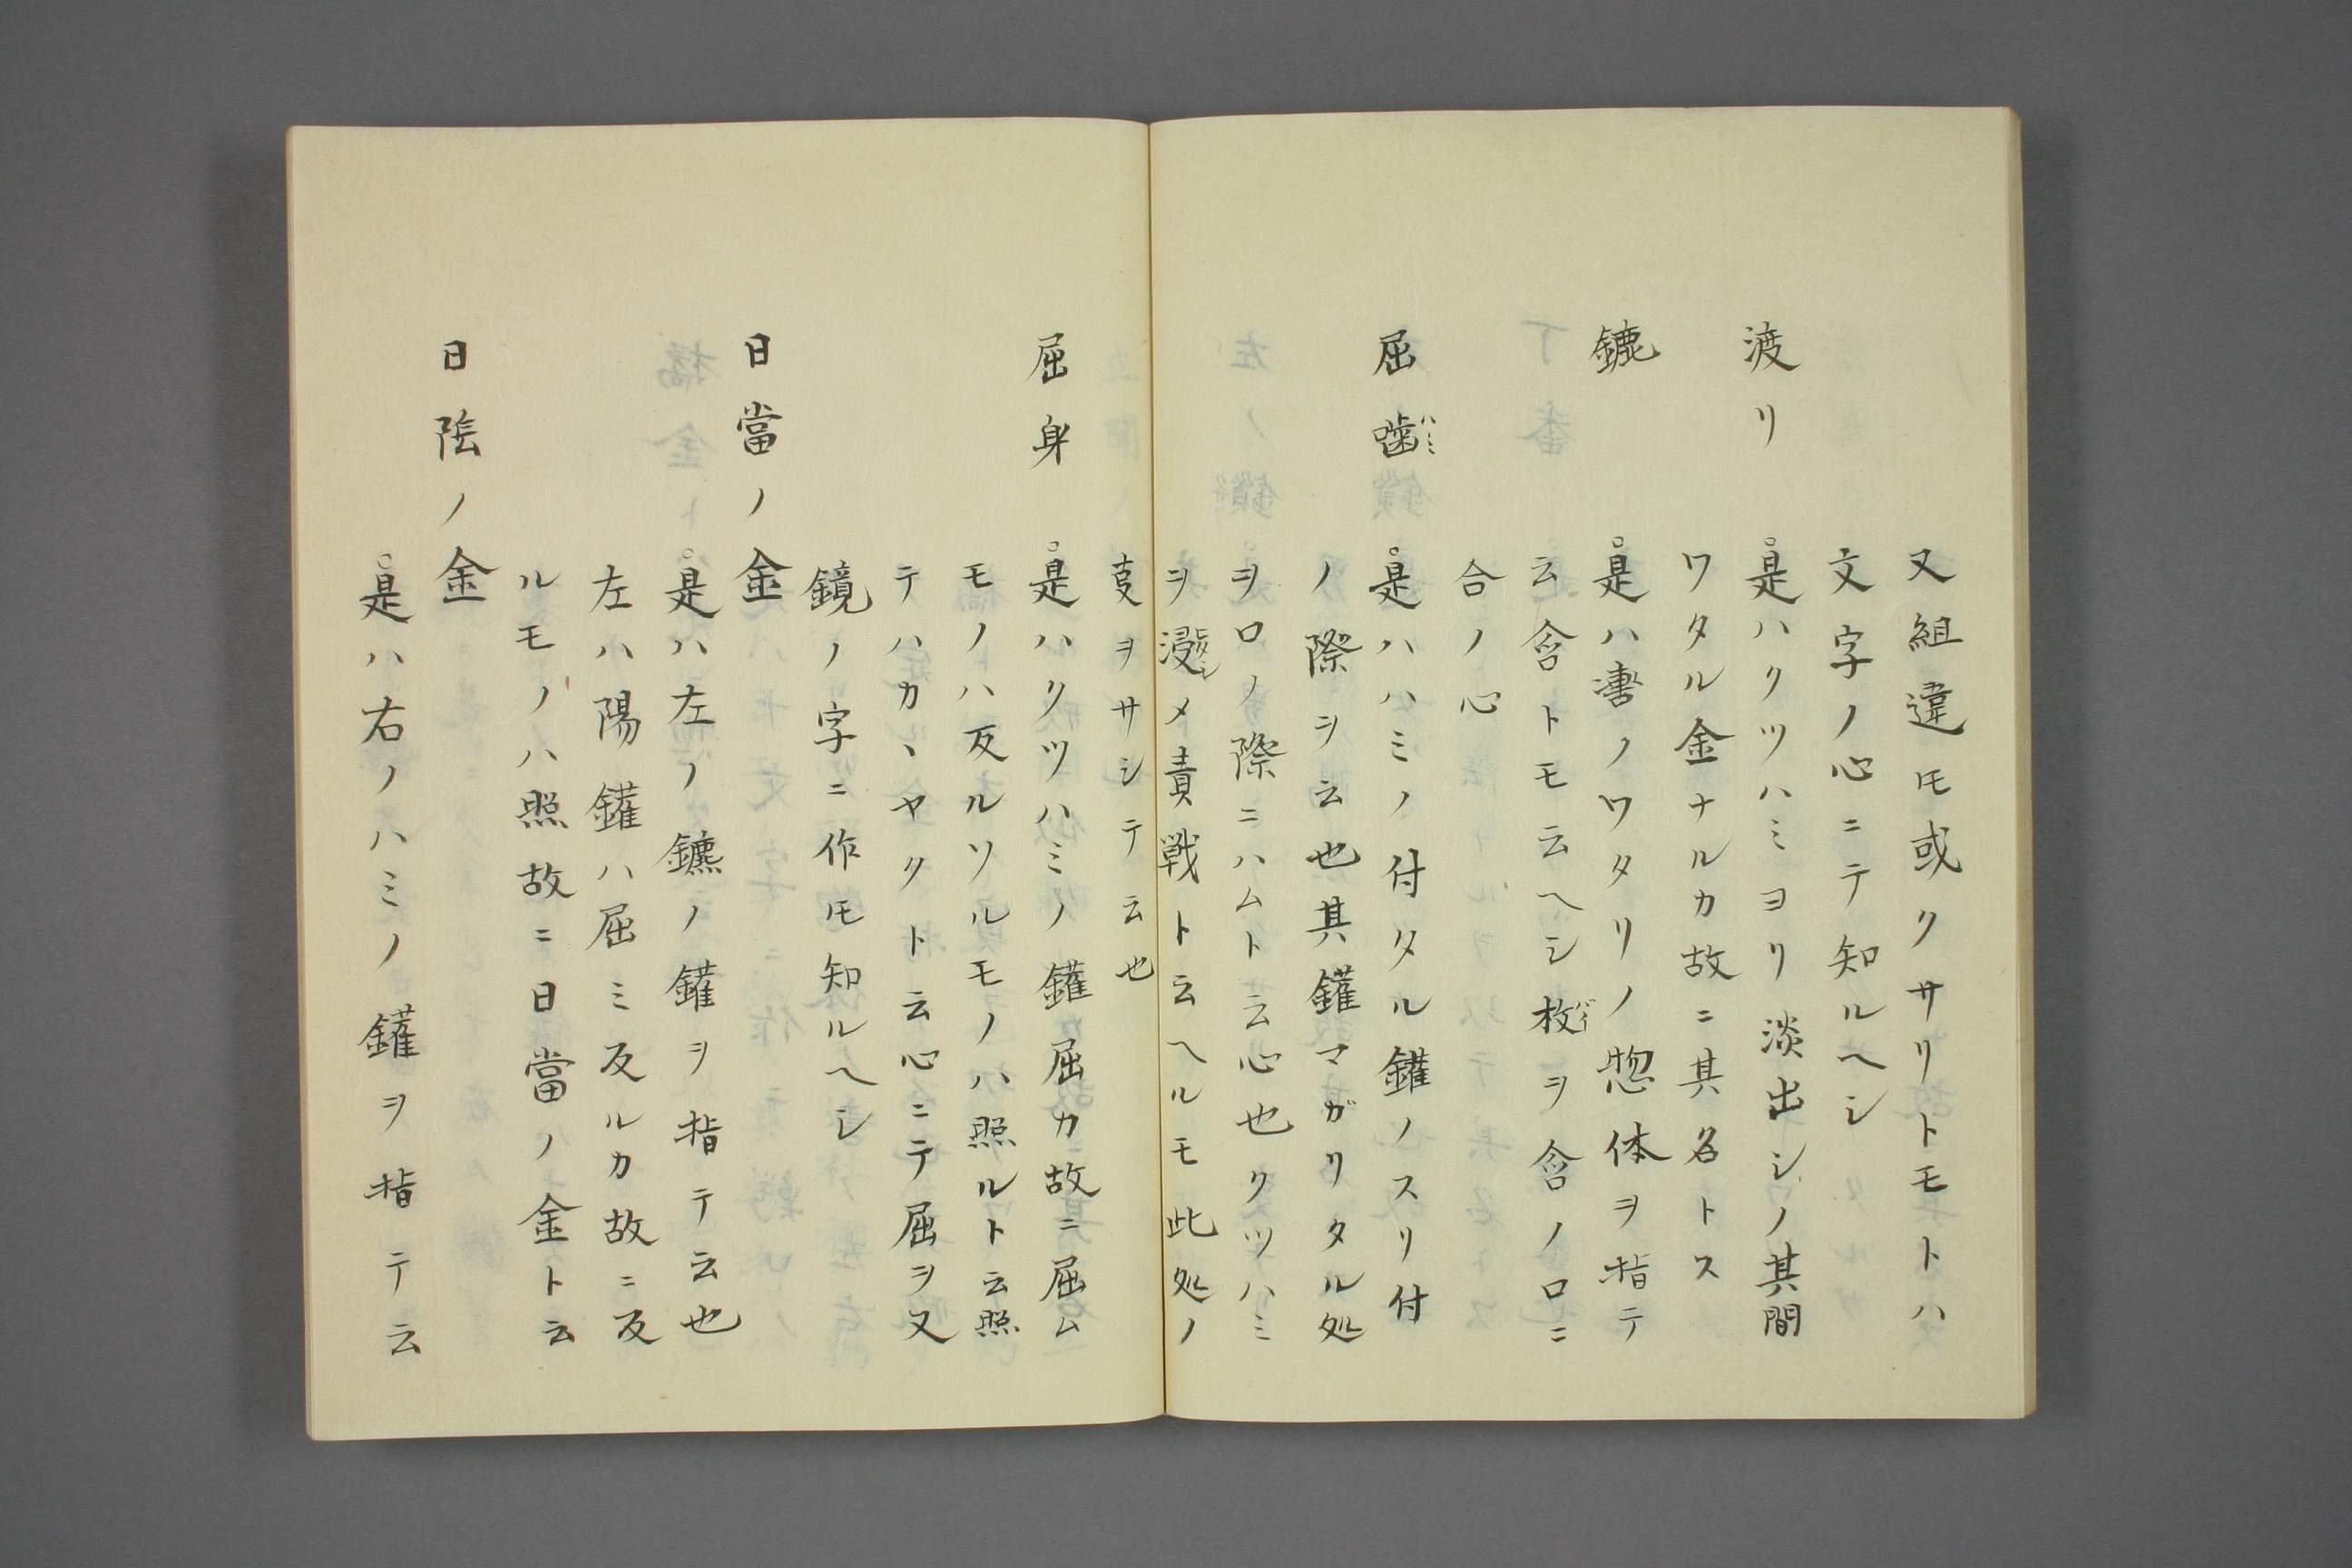 又組違モ或クサリトモトハ
文字ノ心ニテ知ルヘシ
渡リ
○是ハクツハミヨリ淡出シノ其間
ワタル金ナルカ故ニ其名トス
鑣
○是ハ轡ノワタリノ惣体ヲ指テ
云含トモ云ヘシ枚バイヲ含ノロニ
合ノ心
屈噛ハミ
○是ハハミノ付タル鑵ノスリ付
ノ際ヲ云也其鑵マガリタル処
ヲロノ際ニハムト云心也クツハミ
ヲ浸メ責戦ト云ヘルモ此処ノ
支ヲサシテ云也
屈身
○是ハクツハミノ鑵屈カ故ニ屈ム
モノハ反ルソルモノハ照ルト云照
テハカヽヤクト云心ニテ屈ヲ又
鏡ノ字ニ作モ知ルヘシ
日當ノ金
○是ハ左ノ鑣ノ鑵ヲ指テ云也
左ハ陽鑵ハ屈ミ反ルカ故ニ反
ルモノハ照故ニ日當ノ金ト云
日陰ノ金
○是ハ右ノハミノ鑵ヲ指テ云